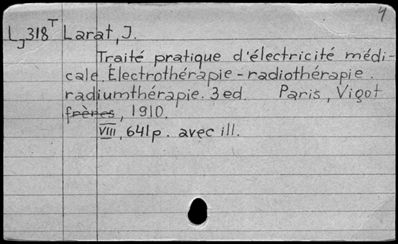 4
LJ318T Larat, J.
Traité pratique d'électricité médi-
cale. Électrothérapie - radiothérapie.
radiumthérapie. 3 ed. Paris, Vigot
frères, 1910.
VIII, 641p. avec ill.